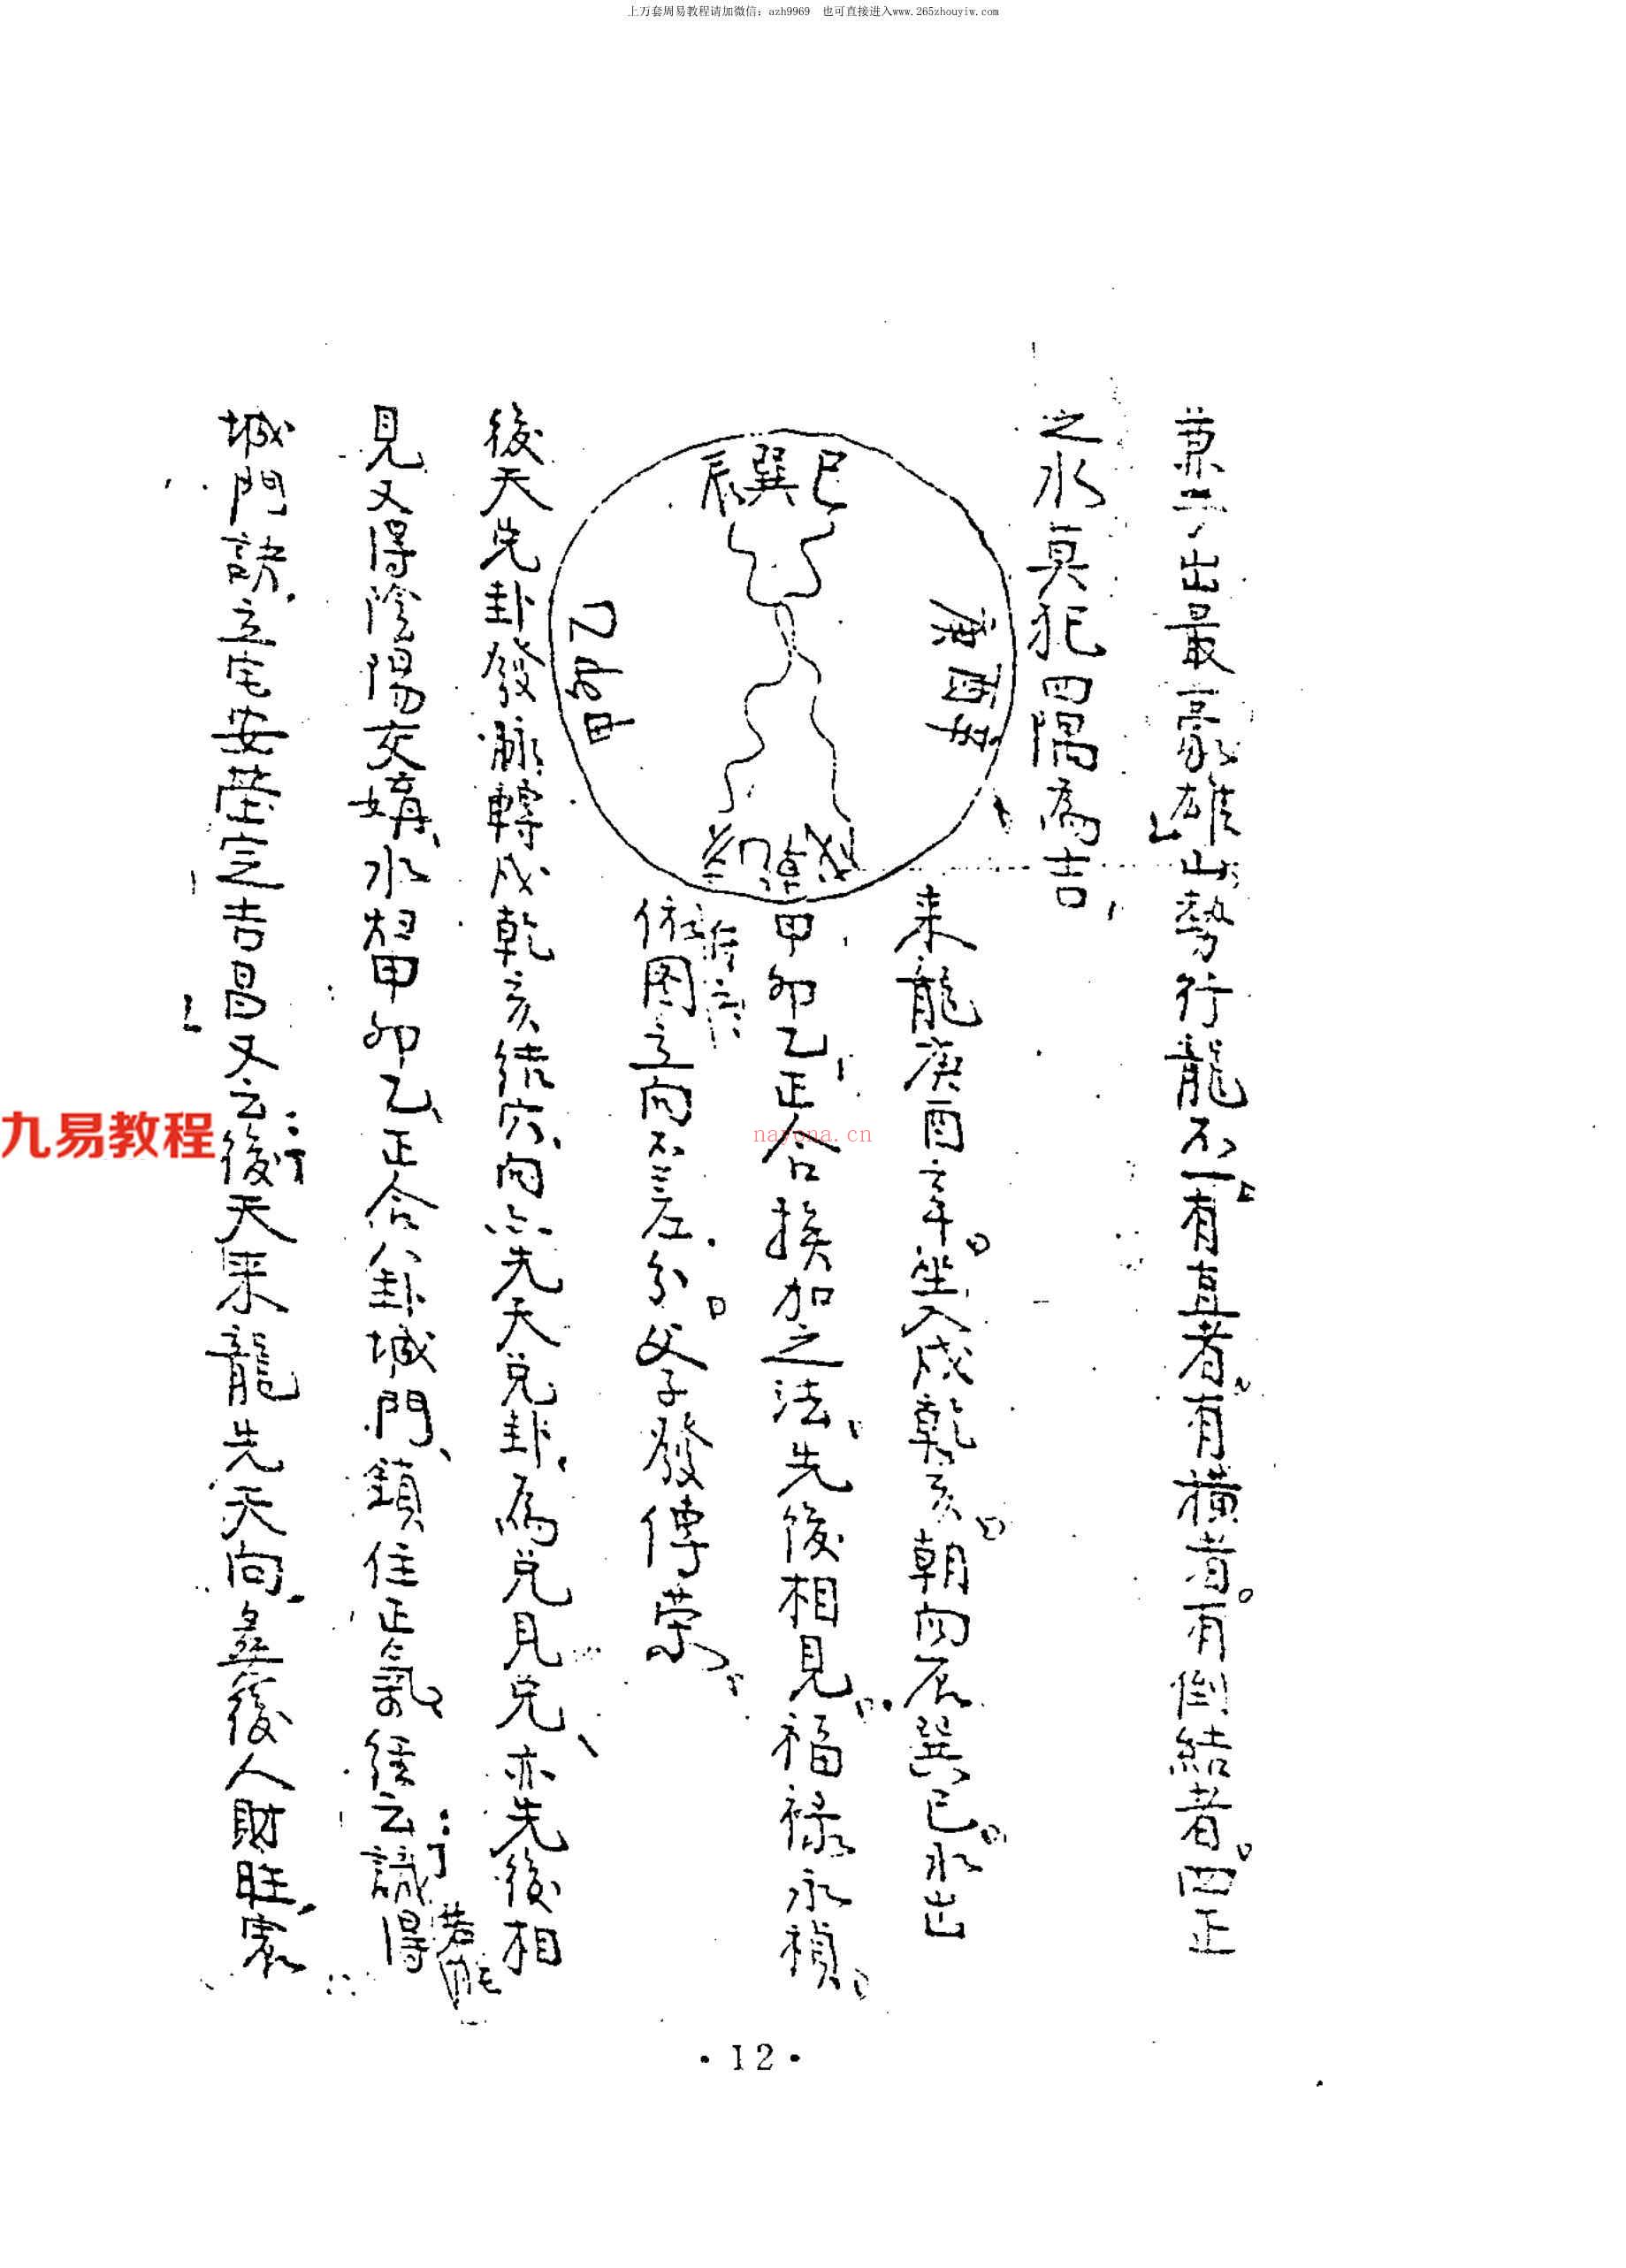 上万套周易教程请加微信：azh9969 也可直接进入www.265zhouyiw.com
出最豪雄山勢行龍不一有直者有橫者有倒結者四正
之水莫犯四隅為吉
辰巽巳
庚酉辛
乙卯甲
戌乾
来龍庚酉辛坐入戌乾亥朝向辰巽巳水出
甲卯乙正合挨加之法先後相見福禄永禎
依图立向不差分父子發傳荣
後天先卦發脉轉戌乾亥结穴向六先天兑卦為兑見兑亦先後相
見又得陰陽交媾水甲卯乙正合八卦城門鎖住正氣经云識得
若能
城門訣立宅安塋定吉昌又云後天来龍先天向後人財旺
九易教程
nayona.cn
·12·